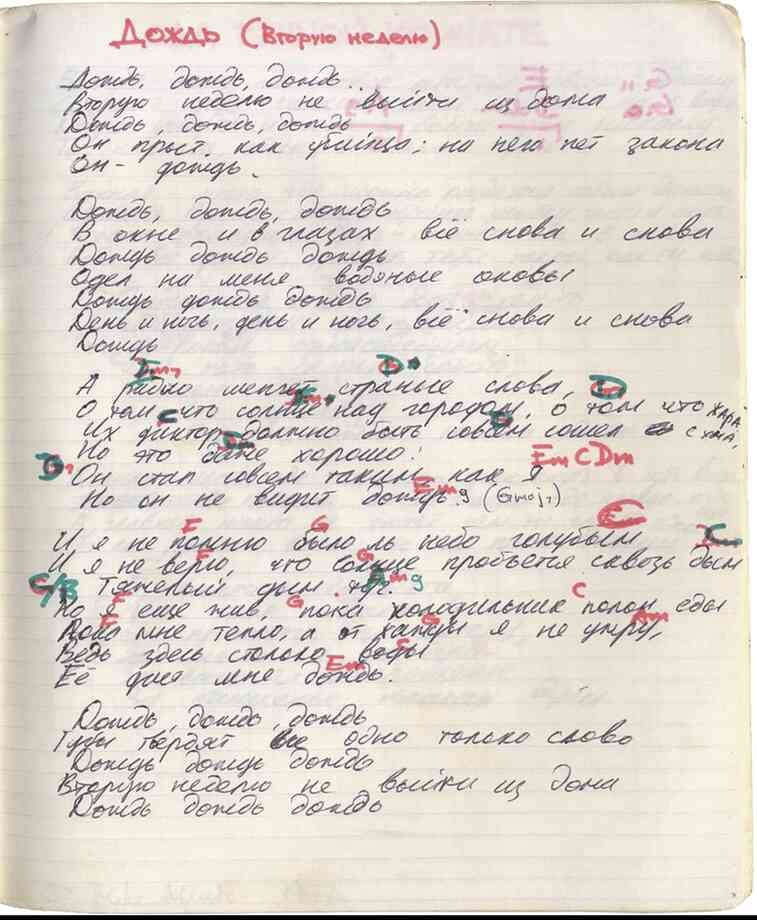 Дождь (Вторую неделю)
Дождь, дождь, дождь..
Вторую неделю не выйти из дома
Дождь, дождь, дождь
Он прост, как убийца; на него нет закона
Он - дождь.
Дождь, дождь, дождь
В окне и в глазах всё снова и снова
Дождь дождь дождь
Одел на меня водяные оковы
Дождь дождь дождь
День и ночь, день и ночь, всё снова и снова
Дождь
А радио шепчет странные слова,
О том что солнце над городом, о том что жара
Их диктор должно быть совсем сошел с ума,
Но это даже хорошо!
Em C Dm
Он стал совсем таким как я
Но он не видит дождь. (Gmaj7)
F G C
И я не помню было ль небо голубым
F G
И я не верю, что солнце пробьется сквозь дым
C/B Тяжелый дым
F G C
Но я еще жив, пока холодильник полон еды
F G Am
Пока мне тепло, а от жажды я не умру,
Ведь здесь столько воды
Em
Её дал мне дождь.
Дождь, дождь, дождь
Тучи твердят все одно только слово
Дождь дождь дождь
Вторую неделю не выйти из дома
Дождь дождь дождь